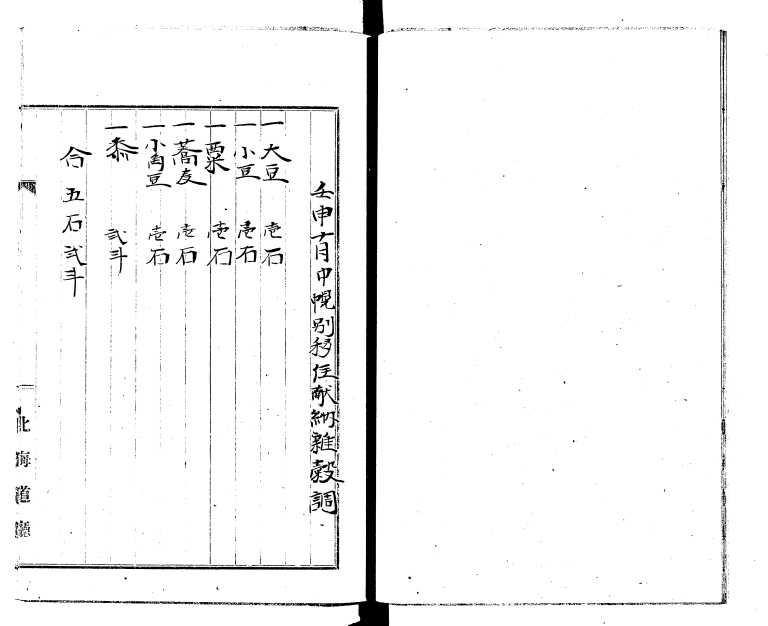 壬申十月中幌別移住献納雑穀調
一大豆 壱石
一小豆 壱石
一粟 壱石
一蕎麦 壱石
一小角豆 壱石
一黍 弐斗
合五石弐斗
北海道廳